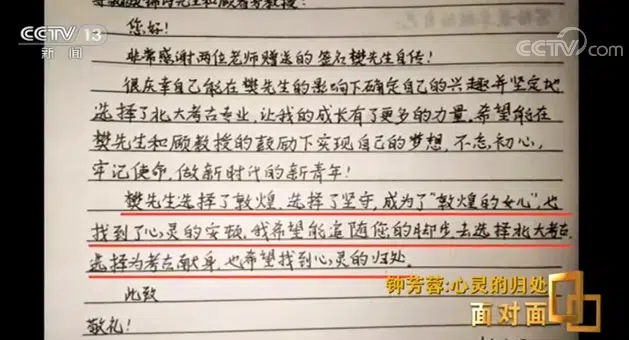 CCTV 13
新闻
CCTV.com
您好!
非常感谢两位老师赠送的签名樊先生自传!
很庆幸自己能在樊先生的影响下确定自己的兴趣并坚定地
选择了北大考古专业,让我的成长有了更多的力量。希望能在
樊先生和顾教授的鼓励下实现自己的梦想,不忘初心,
牢记使命,做新时代的新青年!
樊先生选择了敦煌,选择了坚守,成为了“敦煌的女儿”,也
找到了心灵的安顿,我希望能追随您的脚步去选择北大考古,
选择为考古献身,也希望找到心灵的归处。
此致
敬礼!
钟芳蓉:心灵的归处
面对面